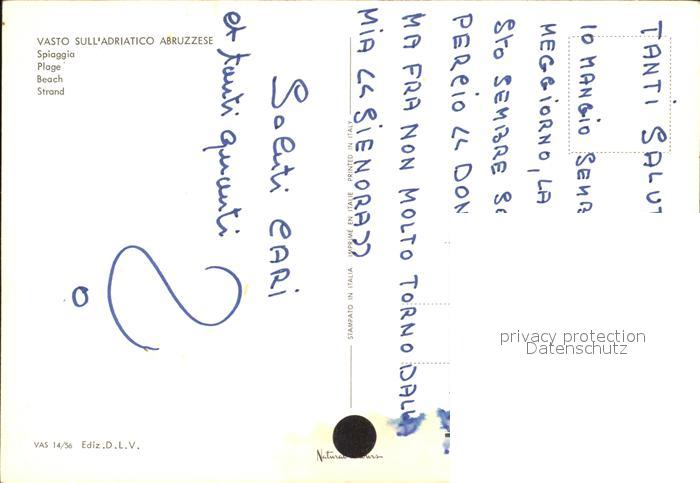 VASTO SULL'ADRIATICO ABRUZZESE
Spiaggia
Plage
Beach
Strand
TANTI SALUT
IO MANGIO SEMP
MEGGIORNO, LA
STO SEMBRE SO
PERCIO << DON
MA FRA NON MOLTO TORNO DALL
MIA << SIENORA >>
Saluti CARI
et tanti
STAMPATO IN ITALIA IMPRIMÉ EN ITALIE PRINTED IN ITALY
VAS 14/56 Ediz. D.L.V.
privacy protection
Datenschutz